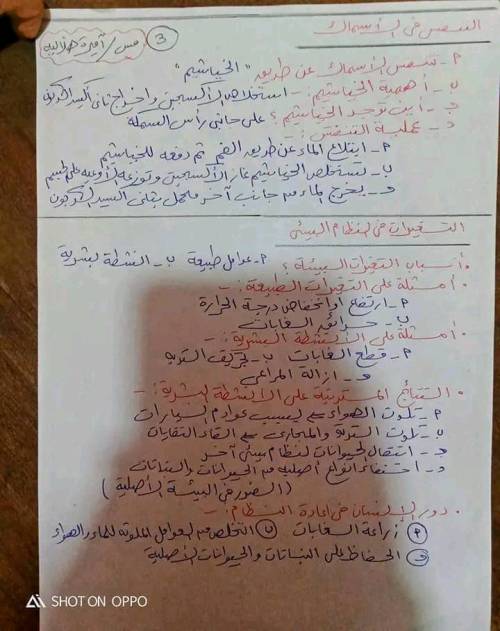 ③ مس / أميرة
التنفس فى الأسماك
٢- تتنفس الأسماك عن طريق " الخياشيم "
ب- أهمية الخياشيم :- استخلاص الأكسجين واخراج ثانى أكسيد الكربون
ج- أين توجد الخياشيم ؟ على جانبى رأس السمكة
د- عملية التنفس :-
٢- ابتلاع الماء عن طريق الفم ثم دفعه للخياشيم
ب- تستخلص الخياشيم غاز الأكسجين وتوزعه الأوعية على الجسم
جـ- يخرج الماء من جانب آخر محمل بثانى أكسيد الكربون
التغيرات فى النظام البيئى
• أسباب التغيرات البيئية ؟ ٢- عوامل طبيعة ب- أنشطة بشرية
• أمثلة على التغيرات الطبيعة :-
٢- ارتفاع أو انخفاض درجة الحرارة
ب- حرائق الغابات
• أمثلة على الأنشطة البشرية :-
٢- قطع الغابات ب- تجريف التربة
جـ- ازالة المراعى
• النتائج المترتبة على الأنشطة البشرية :-
٢- تلوث الهواء بسبب عوادم السيارات
ب- تلوث التربة والمجارى القاء النفايات
جـ- انتقال الحيوانات لنظام بيئى آخر
د- اختفاء أنواع أصلية من الحيوانات والنباتات
( فى البيئة الأصلية )
• دور الإنسان فى اعادة النظام :-
٢ زراعة الغابات ب التخلص من العوامل الملوثة للماء والهواء
جـ الحفاظ على النباتات والحيوانات الأصلية
SHOT ON OPPO